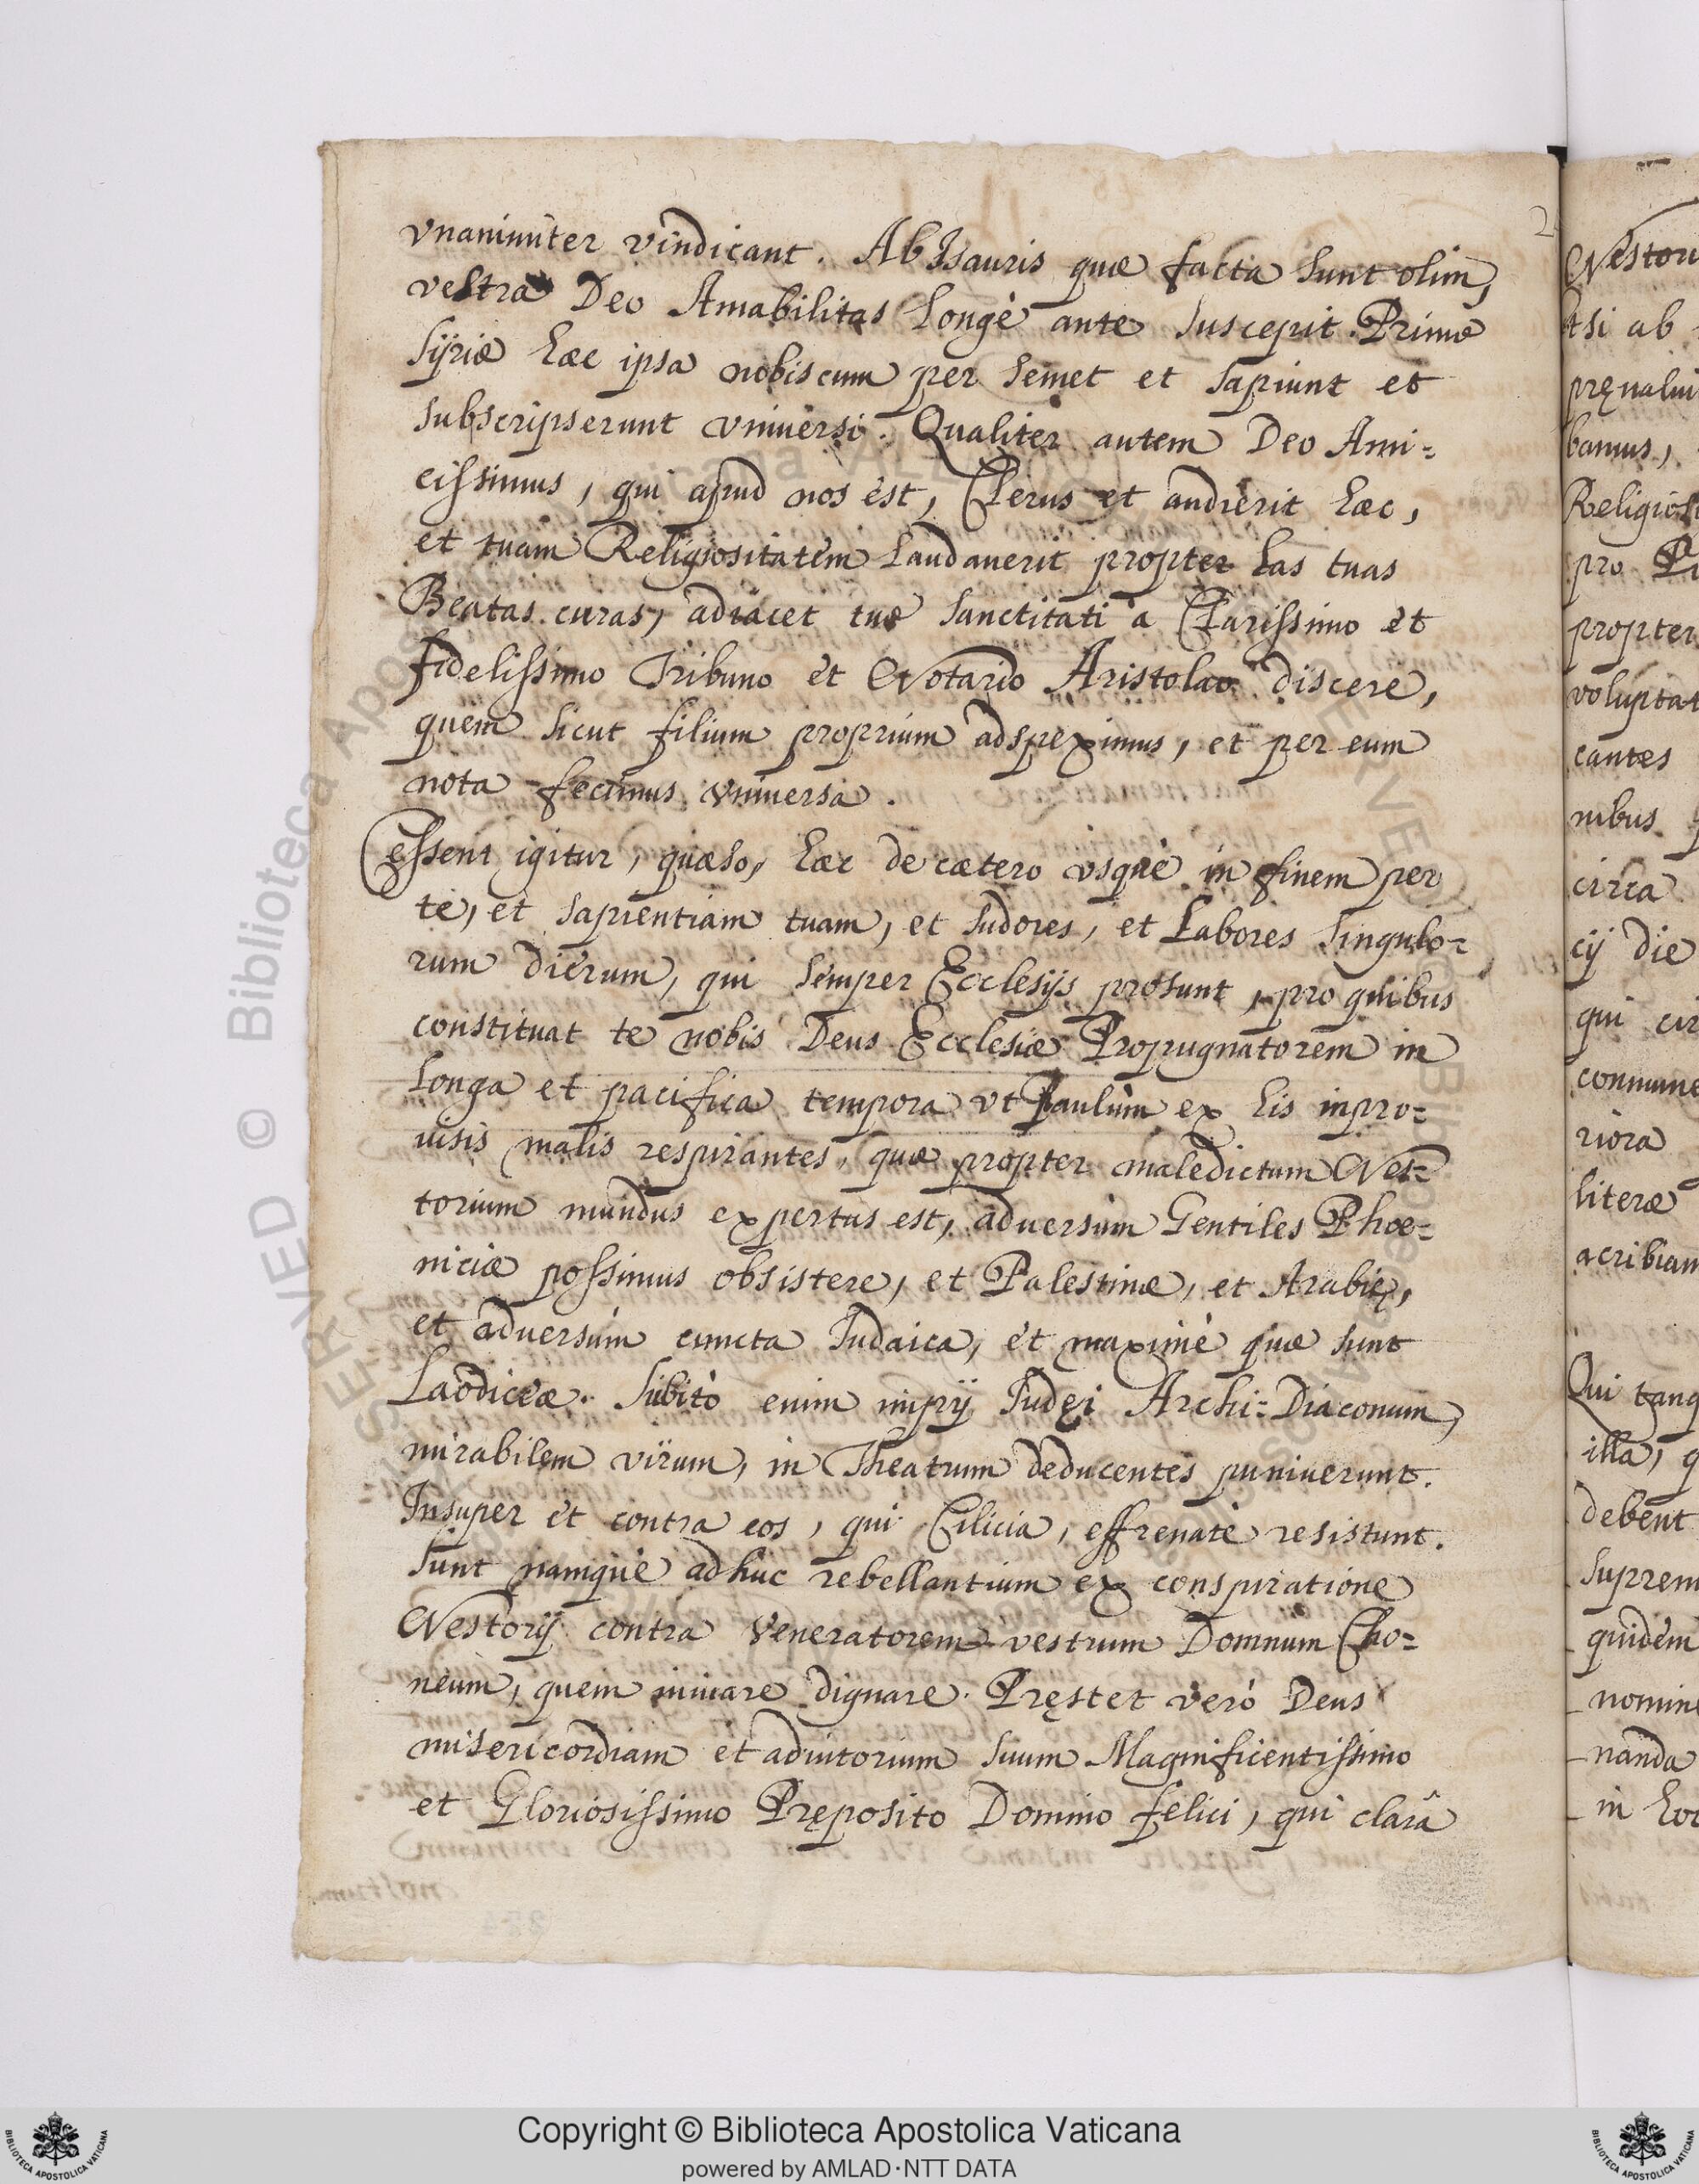 vnanimiter vindicant. Ab Isauris quæ facta sunt olim,
vestra Deo Amabilitas longè ante suscepit. Primæ
Syriæ hæc ipsa nobiscum per semet et sapiunt et
subscripserunt vniuersi. Qualiter autem Deo Ami=
cissimus, qui apud nos est, Clerus et audierit hæc,
et tuam Religiositatem laudauerit propter has tuas
Beatas curas, adiacet tuæ sanctitati à Clarissimo et
fidelissimo Tribuno et Notario Aristolao discere,
quem sicut filium proprium adspeximus, et per eum
nota fecimus vniuersa.
Cessent igitur, quæso, hæc de cætero vsquè in finem per
te, et sapientiam tuam, et sudores, et Labores singulo=
rum dierum, qui semper Ecclesijs prosunt, pro quibus
constituat te nobis Deus Ecclesiæ Propugnatorem in
longa et pacifica tempora vt Paulùm ex his inpro=
uisis malis respirantes, quæ propter maledictum Nes=
torium mundus expertus est, aduersùm Gentiles Phoe=
niciæ possimus obsistere, et Palestinæ, et Arabię,
et aduersùm cuncta Iudaica, et maximè quæ sunt
Laodiceæ. Subitò enim impij Iudęi Archi=Diaconum,
mirabilem virum, in Theatrum deducentes puniuerunt.
Insuper et contra eos, qui Cilicia, effrenatè resistunt.
Sunt namquè adhuc rebellantium ex conspiratione
Nestorij contra Veneratorem vestrum Domnum Cho=
neum, quem iuuare dignare. Pręstet verò Deus
misericordiam et adiutorium suum Magnificentissimo
et Gloriosissimo Pręposito Domino felici, qui clarâ
2
Nestori
Etsi ab
pręualui
bamus,
Religiosi
pro
propter
voluptat
cantes
nibus
circa
cij die
qui cir
commune
riora
literæ
acribiam
Qui tanq
illa, q
debent
suprem
quidem
nomine
nanda
in hoc
© Biblioteca Apostolica Vaticana
Copyright © Biblioteca Apostolica Vaticana
powered by AMLAD·NTT DATA
BIBLIOTECA APOSTOLICA VATICANA
BIBLIOTECA APOSTOLICA VATICANA